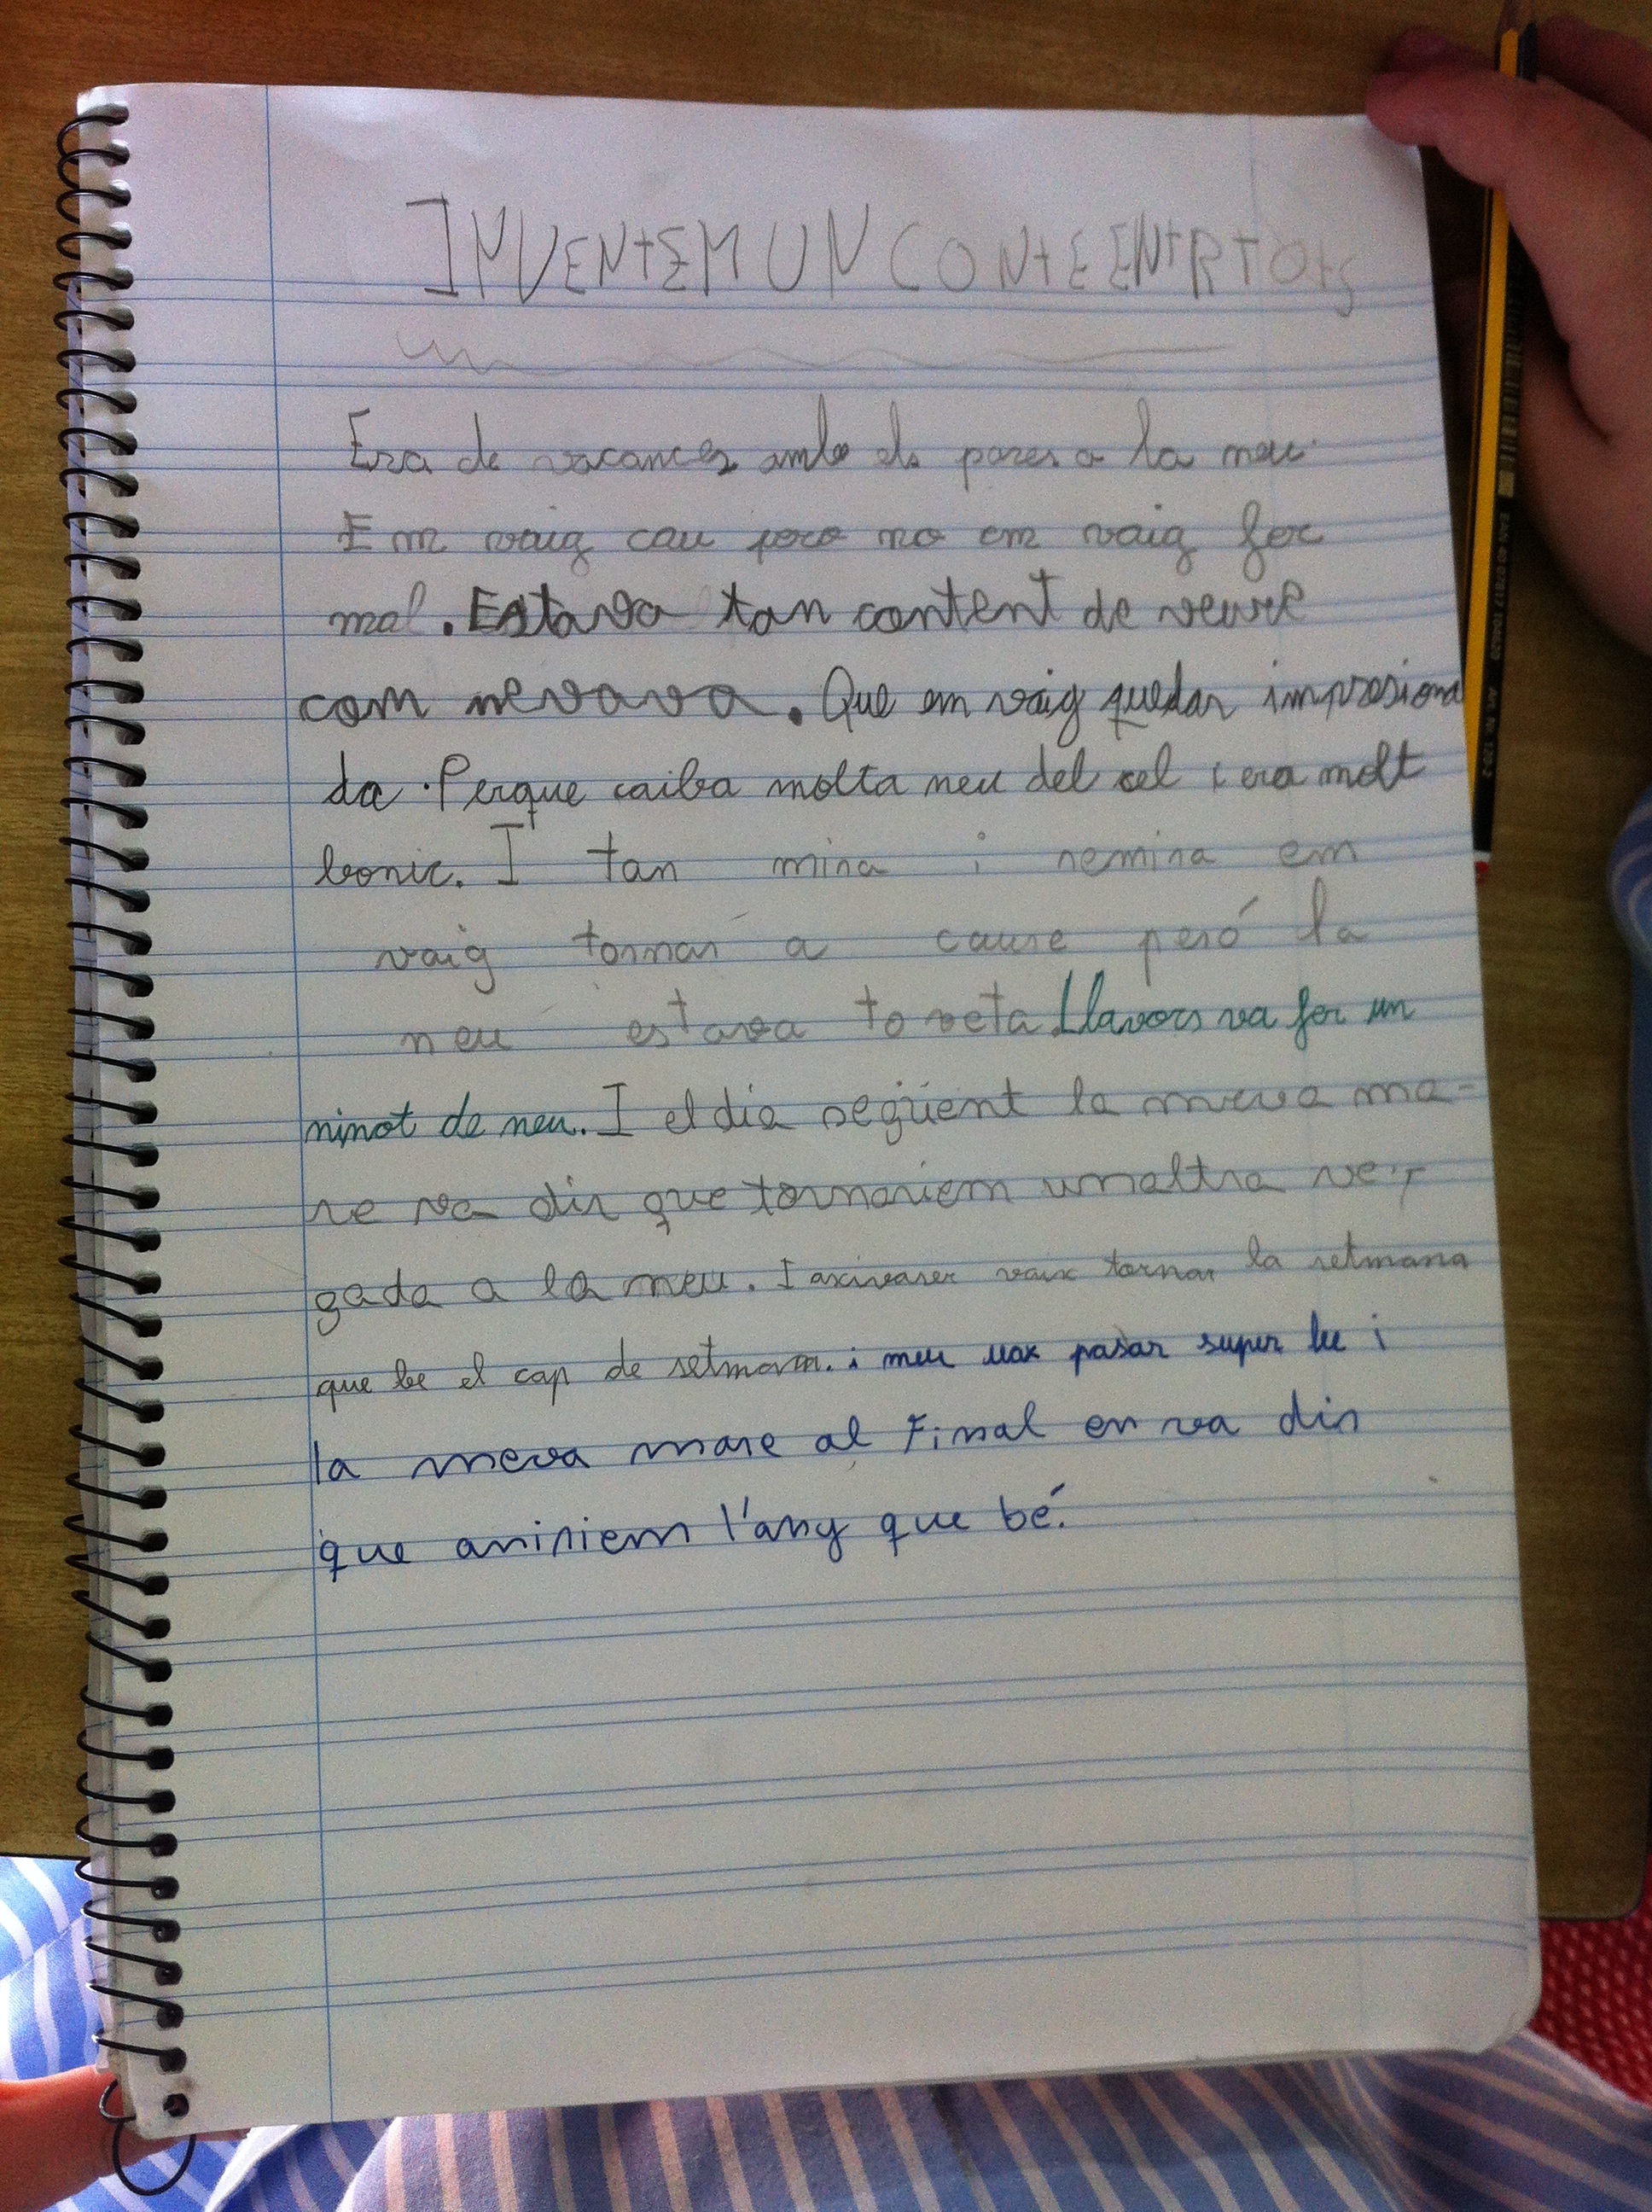 INVENTEM UN CONTE ENTRTOTS
Era de vacances amb els pares a la neu.
Em vaig cau pero no em vaig fer
mal. Estava tan content de veure
com nevava. Que em vaig quedar impresiona
da. Perque caiba molta neu del cel i era molt
bonic. I tan mira i remira em
vaig tornar a caure peró la
neu estava toveta. Llavors va fer un
ninot de neu. I el dia següent la meva ma-
re va dir que tornariem unaltra ve-
gada a la neu. I axivaser vaix tornar la setmana
que be el cap de setmana. i meu vax pasar super be i
la meva mare al Final en va dir
que aniriem l'any que bé.